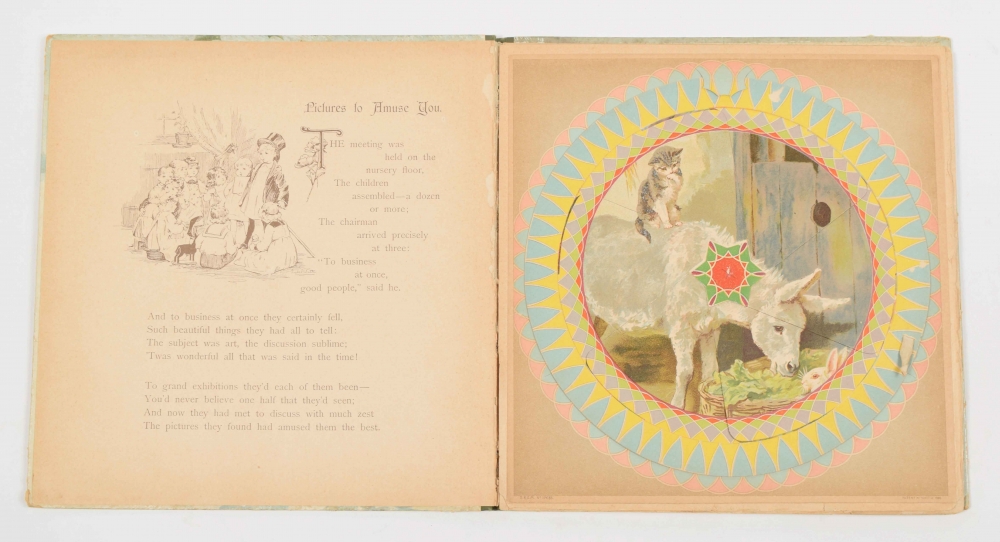 Pictures to Amuse You.
THE meeting was
held on the
nursery floor,
The children
assembled—a dozen
or more;
The chairman
arrived precisely
at three:
"To business
at once,
good people," said he.
And to business at once they certainly fell,
Such beautiful things they had all to tell:
The subject was art, the discussion sublime;
'Twas wonderful all that was said in the time!
To grand exhibitions they'd each of them been—
You'd never believe one half that they'd seen;
And now they had met to discuss with much zest
The pictures they found had amused them the best.